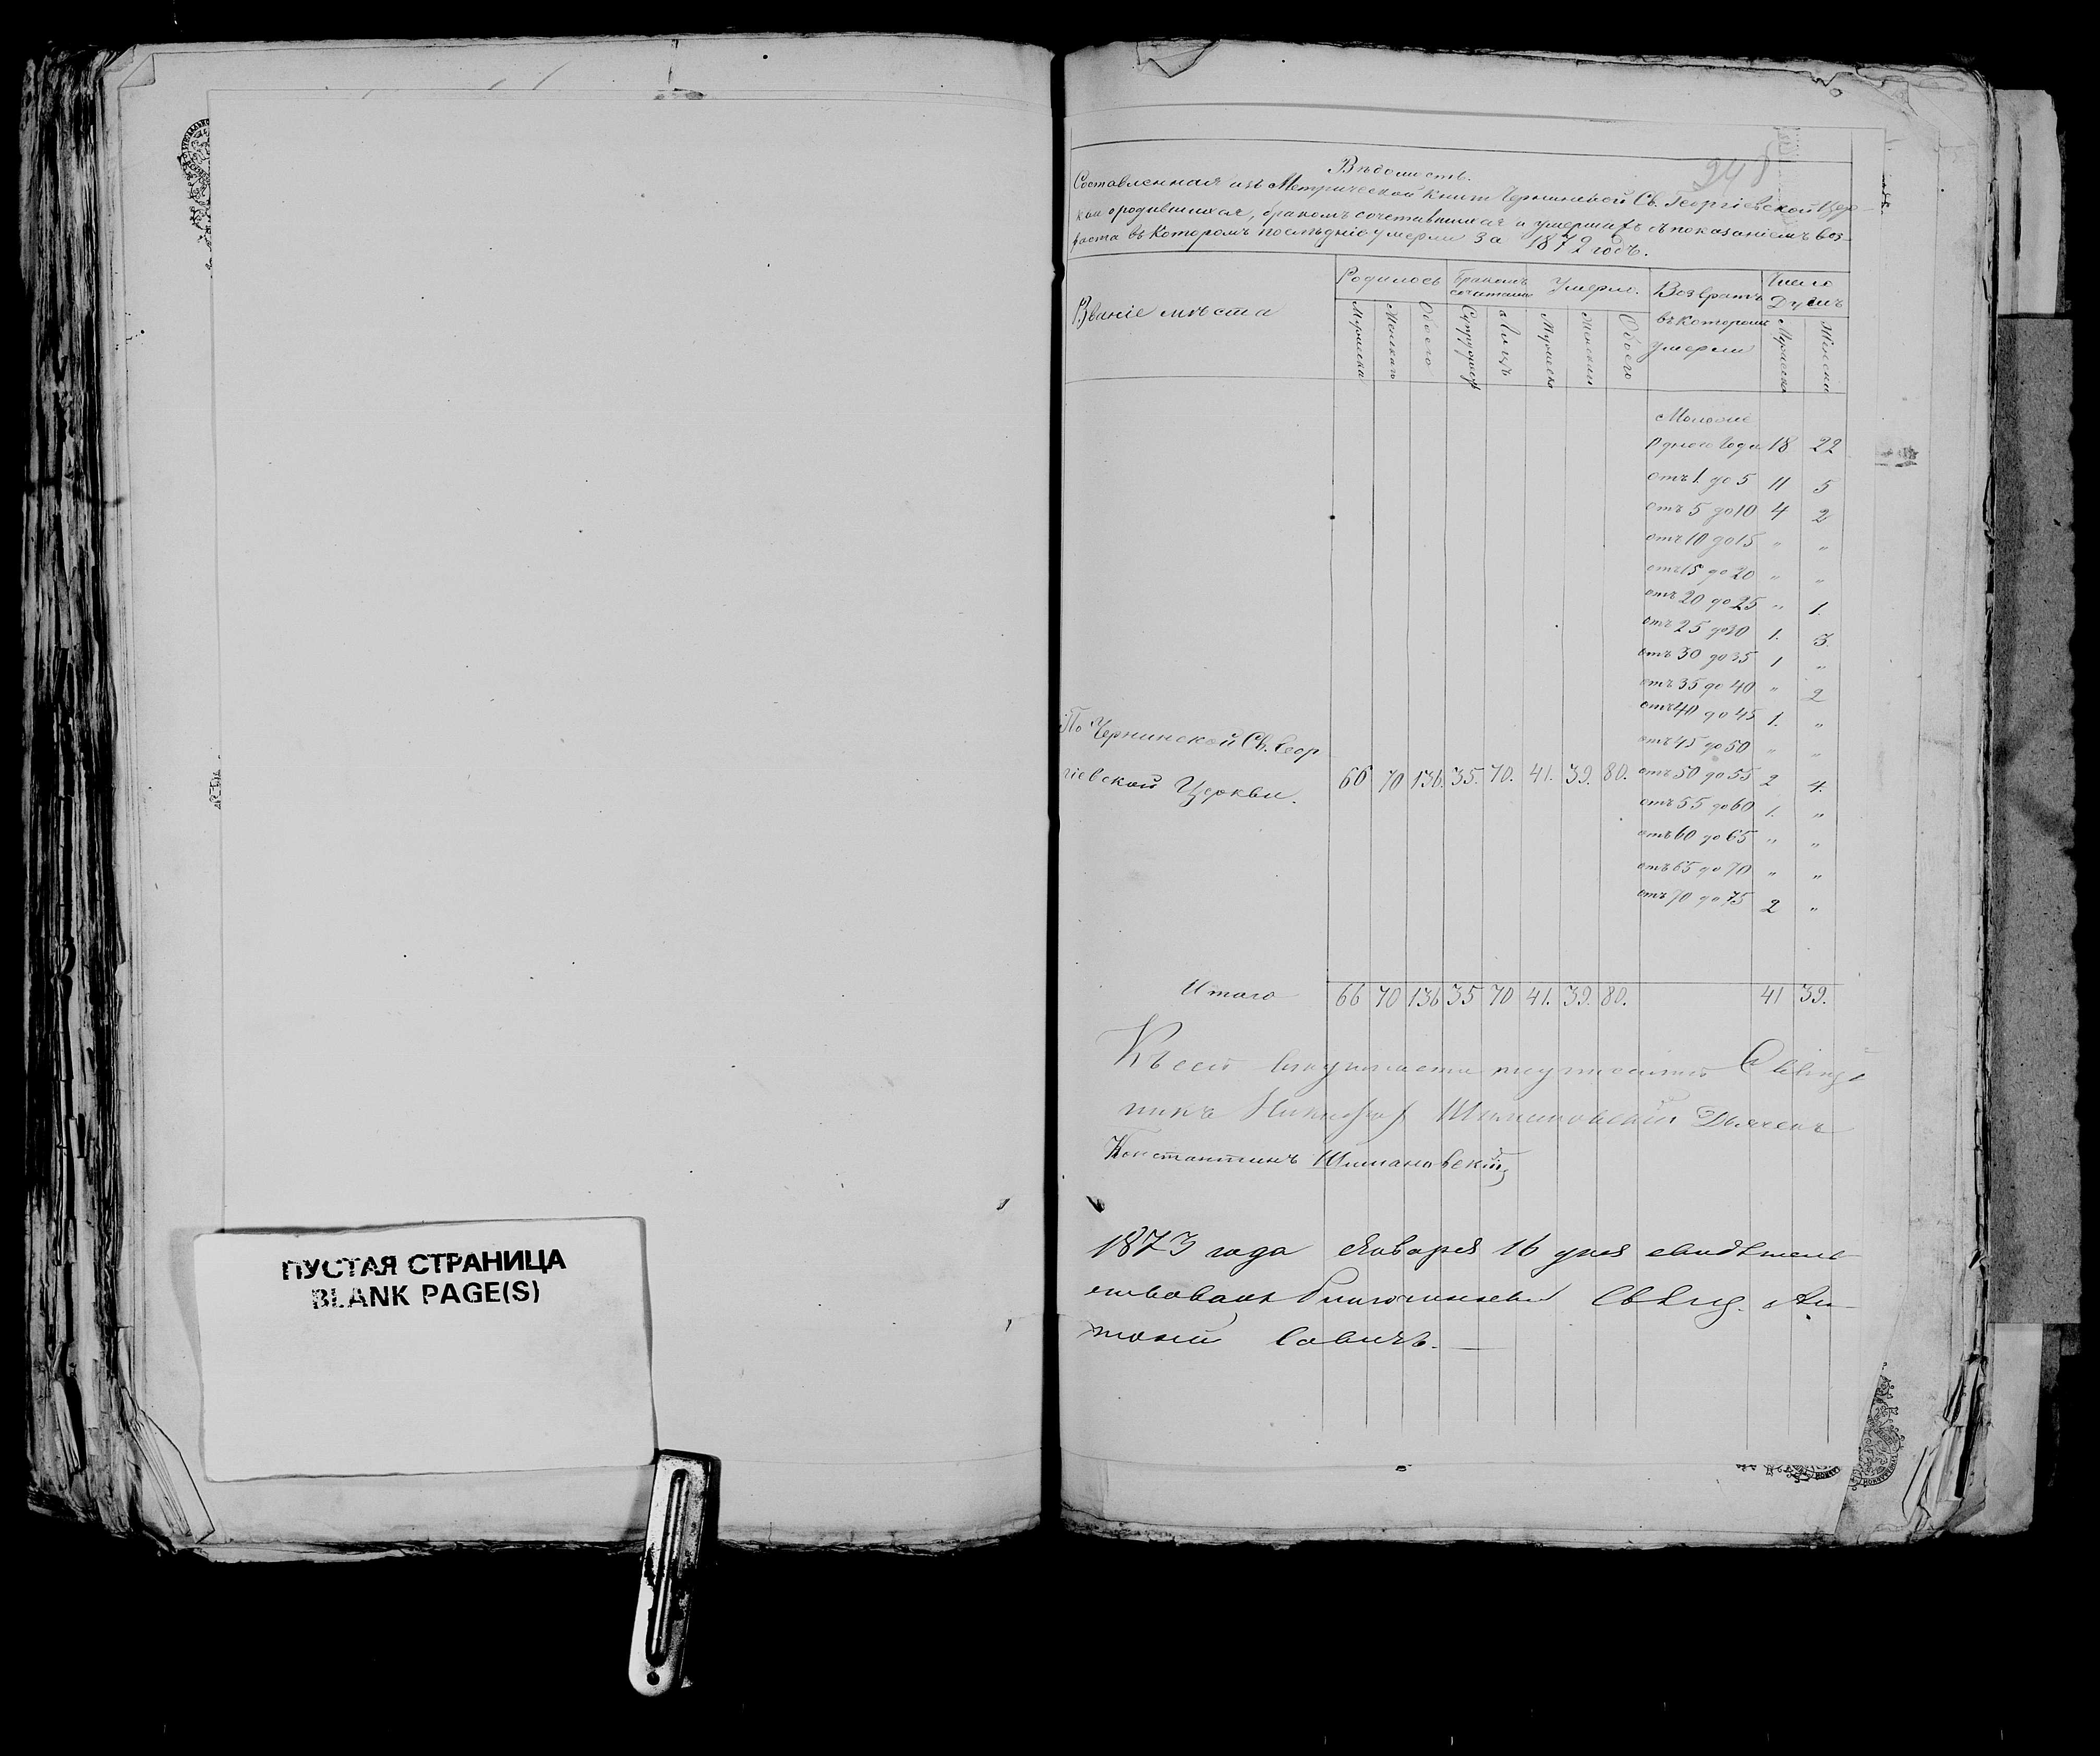 ПУСТАЯ СТРАНИЦА
BLANK PAGE(S)
248
Вѣдомость.
Составленная изъ Метрической книги Чернинской Св. Георгіевской Цер-
кви о родившихся, бракомъ сочетавшихся и умершихъ съ показаніемъ воз-
раста въ которомъ послѣдніе умерли за 1872 годъ.
Званіе мѣста Родилось Бракомъ Умерло. Возвратъ Число Душъ
въ которомъ умерли
Обоего Лицъ Обоего
Одного года 18 22
отъ 1 до 5 11 5
отъ 5 до 10 4 2
отъ 10 до 15 " "
отъ 15 до 20 " "
отъ 20 до 25 " 1.
отъ 25 до 30 1. 3.
отъ 30 до 35 1 "
отъ 35 до 40 " 2
отъ 40 до 45 1. "
отъ 45 до 50 " "
По Чернинской Св. Геор
гіевской Церкви. 66 70 136. 35. 70. 41. 39. 80. отъ 50 до 55 2 4.
отъ 55 до 60 1. "
отъ 60 до 65 " "
отъ 65 до 70 " "
отъ 70 до 75 2 "
Итого 66 70 136 35 70 41. 39. 80. 41 39.
Къ сей
Константинъ Шимановскій
1873 года Января 16 дня свидѣтель
ствовалъ Благочинный Свящ. Ан-
тоній Савичъ.